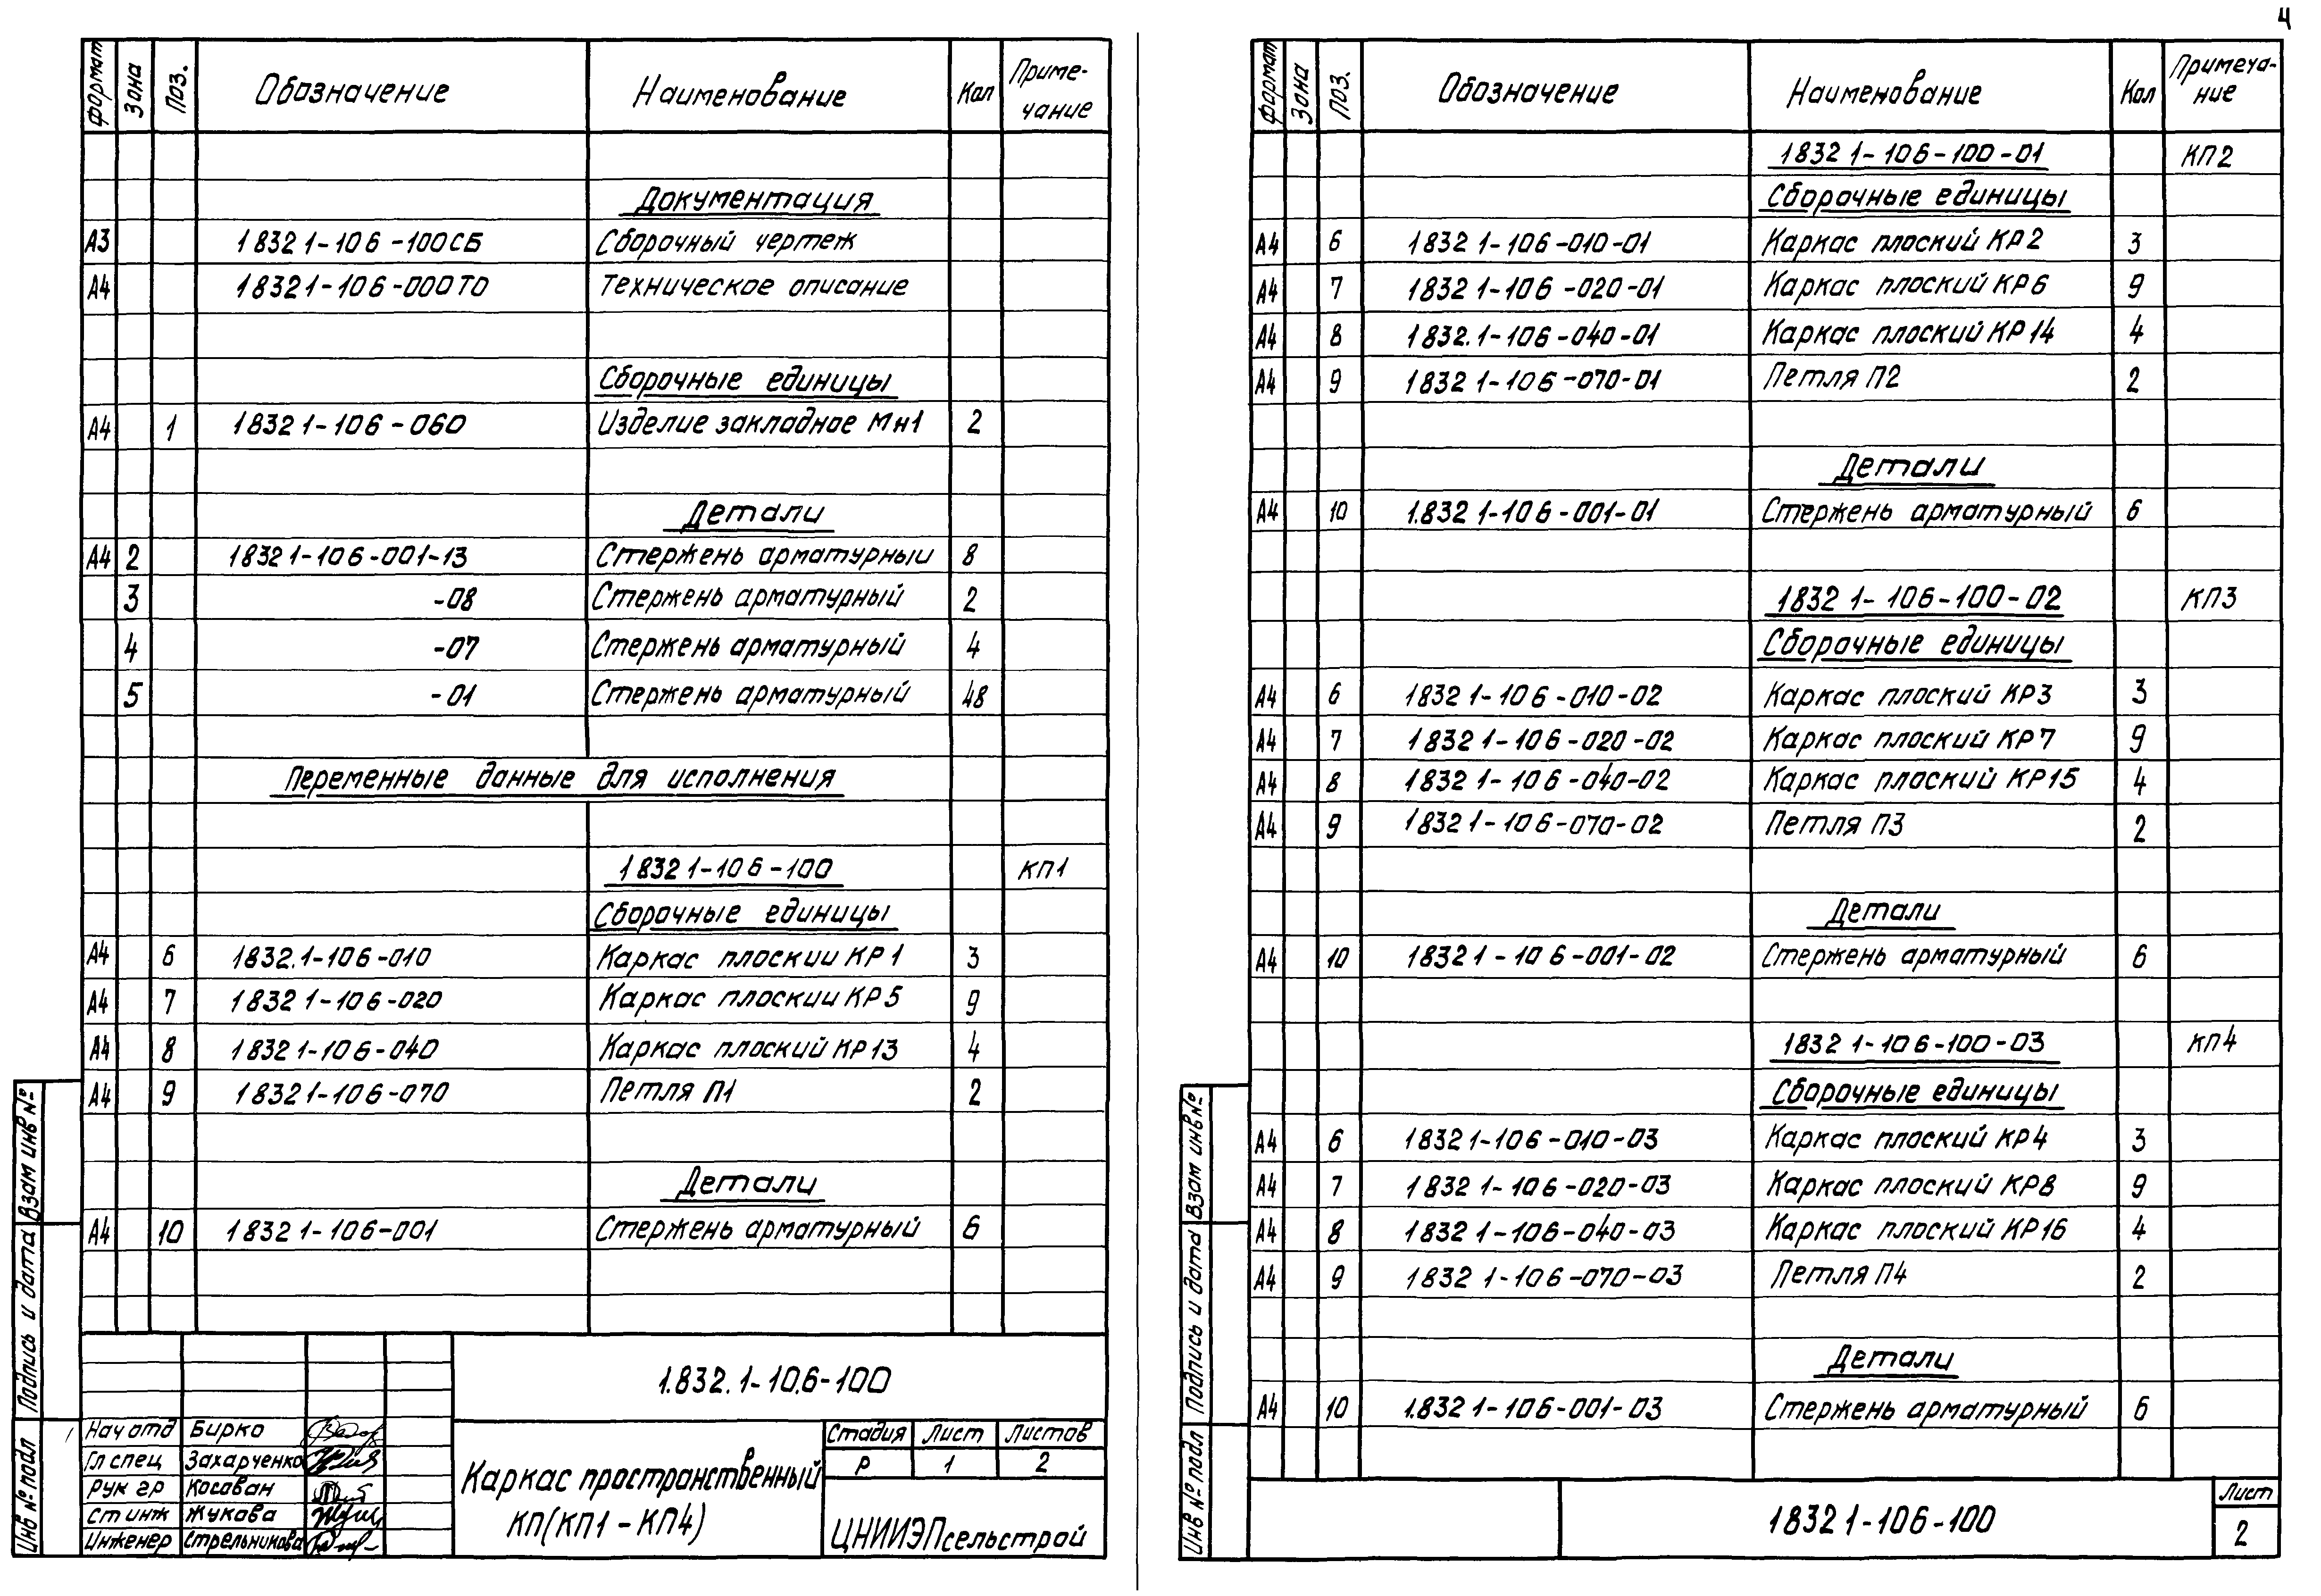 4
формат Зона Поз. Обозначение Наименование Кол Приме-
чание
Документация
А3 1832 1-106-100СБ Сборочный чертеж
А4 1832 1-106-000ТО Техническое описание
Сборочные единицы
А4 1 1832 1-106-060 Изделие закладное Мн1 2
Детали
А4 2 1832 1-106-001-13 Стержень арматурный 8
3 -08 Стержень арматурный 2
4 -07 Стержень арматурный 4
5 -01 Стержень арматурный 48
Переменные данные для исполнения
1832 1-106-100 КП1
Сборочные единицы
А4 6 1832.1-106-010 Каркас плоский КР1 3
А4 7 1832 1-106-020 Каркас плоский КР5 9
А4 8 1832 1-106-040 Каркас плоский КР13 4
А4 9 1832 1-106-070 Петля П1 2
Детали
А4 10 1832 1-106-001 Стержень арматурный 6
1.832.1-10.6-100
Нач отд Бирко
Гл спец Захарченко
Рук гр Косован
Ст инж Жукова
Инженер Стрельникова
Каркас пространственный
КП(КП1-КП4)
Стадия Лист Листов
Р 1 2
ЦНИИЭПсельстрой
Взам инв №
Подпись и дата
Инв № подл
формат Зона Поз. Обозначение Наименование Кол Примеча-
ние
1832 1-106-100-01 КП2
Сборочные единицы
А4 6 1832 1-106-010-01 Каркас плоский КР2 3
А4 7 1832 1-106-020-01 Каркас плоский КР6 9
А4 8 1832.1-106-040-01 Каркас плоский КР14 4
А4 9 1832 1-106-070-01 Петля П2 2
Детали
А4 10 1.832 1-106-001-01 Стержень арматурный 6
1832 1-106-100-02 КП3
Сборочные единицы
А4 6 1832 1-106-010-02 Каркас плоский КР3 3
А4 7 1832 1-106-020-02 Каркас плоский КР7 9
А4 8 1832 1-106-040-02 Каркас плоский КР15 4
А4 9 1832 1-106-070-02 Петля П3 2
Детали
А4 10 1832 1-106-001-02 Стержень арматурный 6
1832 1-106-100-03 КП4
Сборочные единицы
А4 6 1832 1-106-010-03 Каркас плоский КР4 3
А4 7 1832 1-106-020-03 Каркас плоский КР8 9
А4 8 1832 1-106-040-03 Каркас плоский КР16 4
А4 9 1832 1-106-070-03 Петля П4 2
Детали
А4 10 1.832 1-106-001-03 Стержень арматурный 6
1832 1-106-100
Лист
2
Взам инв №
Подпись и дата
Инв № подл